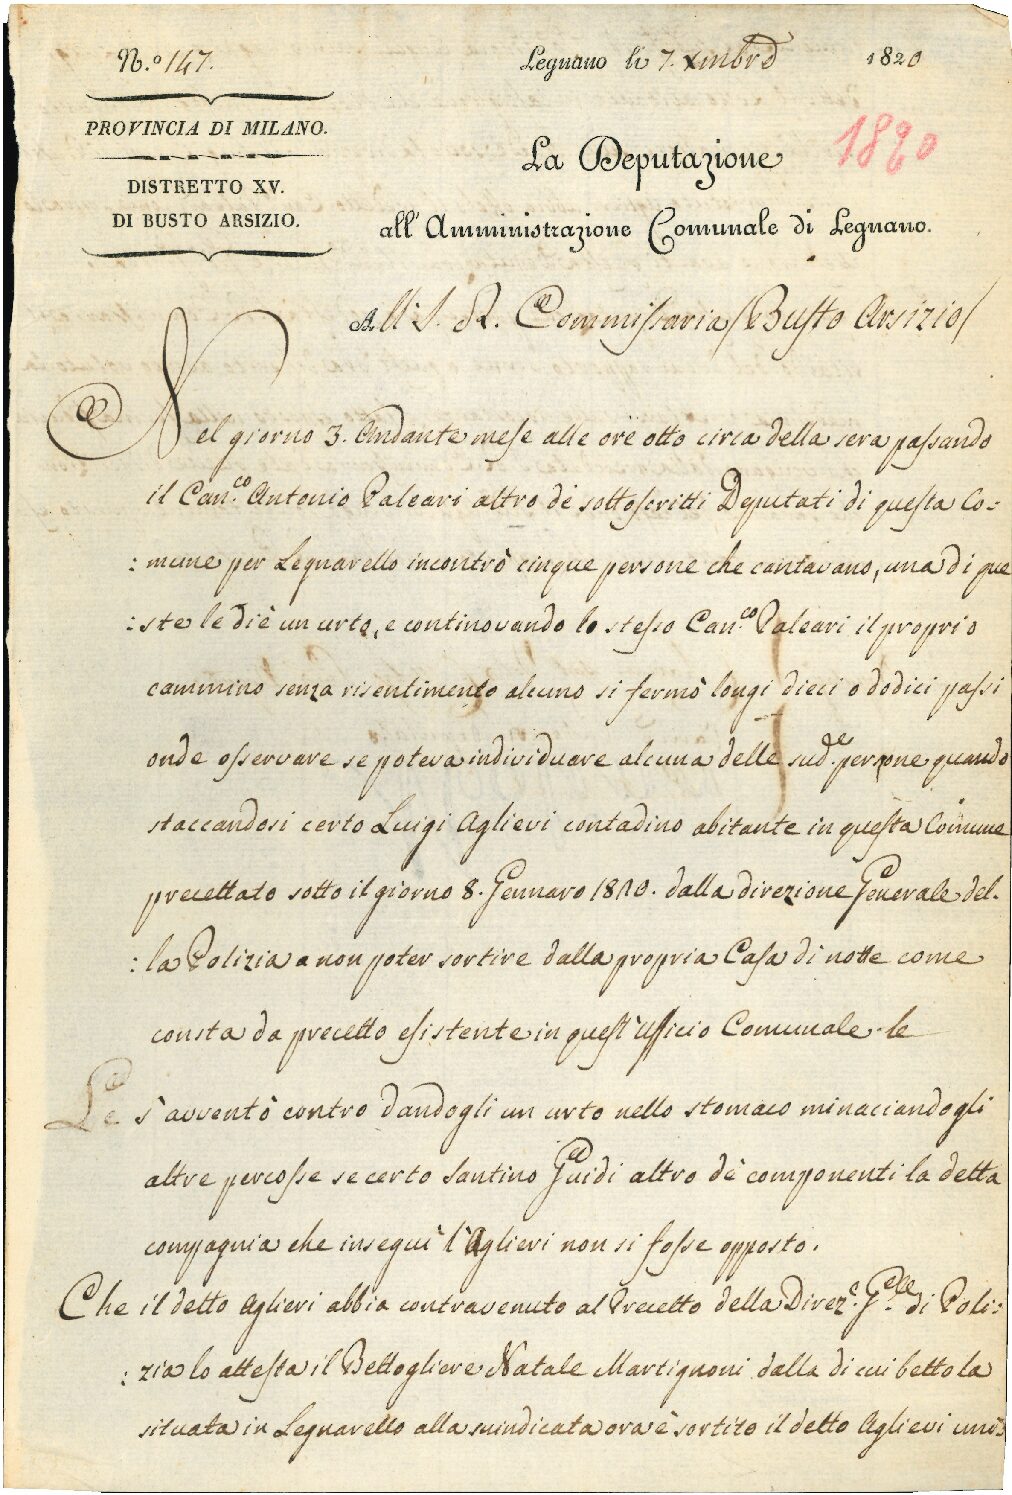 N.º 147.
Legnano li 7. Xmbre 1820
PROVINCIA DI MILANO.
DISTRETTO XV.
DI BUSTO ARSIZIO.
La Deputazione
1820
all' Amministrazione Comunale di Legnano.
All' I. R. Commissaria /Busto Arsizio/
Nel giorno 3. Andante mese alle ore otto circa della sera passando
il Can.co Antonio Paleari altro dè sottoscritti Deputati di questa Co=
:mune per Legnarello incontrò cinque persone che cantavano, una di que
:ste le diè un urto, e continovando lo stesso Can.co Paleari il proprio
cammino senza risentimento alcuno si fermò longi dieci o dodici passi
onde osservare se poteva individuare alcuna delle sud.de persone quando
staccandosi certo Luigi Aglieri contadino abitante in questa Comune
precettato sotto il giorno 8. Gennaro 1820. dalla direzione Generale del.
:la Polizia a non poter sortire dalla propria Casa di notte come
consta da precetto esistente in quest'Ufficio Comunale. le
Le s'avventò contro dandogli un urto nello stomaco minaciandogli
altre percosse se certo Santino Guidi altro dè componenti la detta
compagnia che inseguì l'Aglieri non si fosse opposto.
Che il detto Aglieri abbia contravenuto al Precetto della Direz.e G.ele di Poli=
:zia lo attesta il Bettogliere Natale Martignoni dalla di cui bettola
situata in Legnarello alla suindicata ora è sortito il detto Aglieri